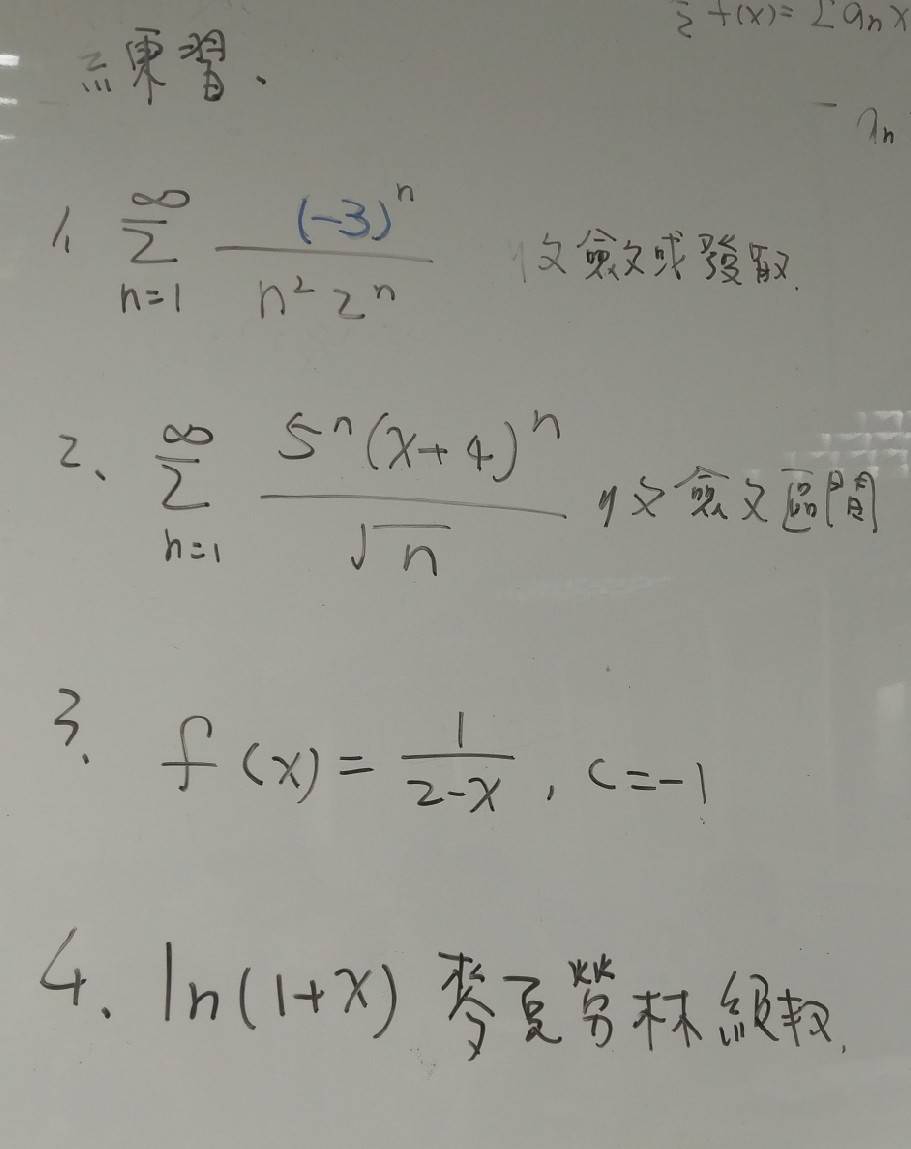 令 f(x) = Σ an x
練習、
an
1. ∞ Σ n=1 (-3)^n / n² 2^n 收斂或發散.
2、 ∞ Σ n=1 5^n (x+4)^n / √n 收斂區間
3. f(x) = 1 / 2-x , c=-1
4. ln(1+x) 麥克勞林級數.